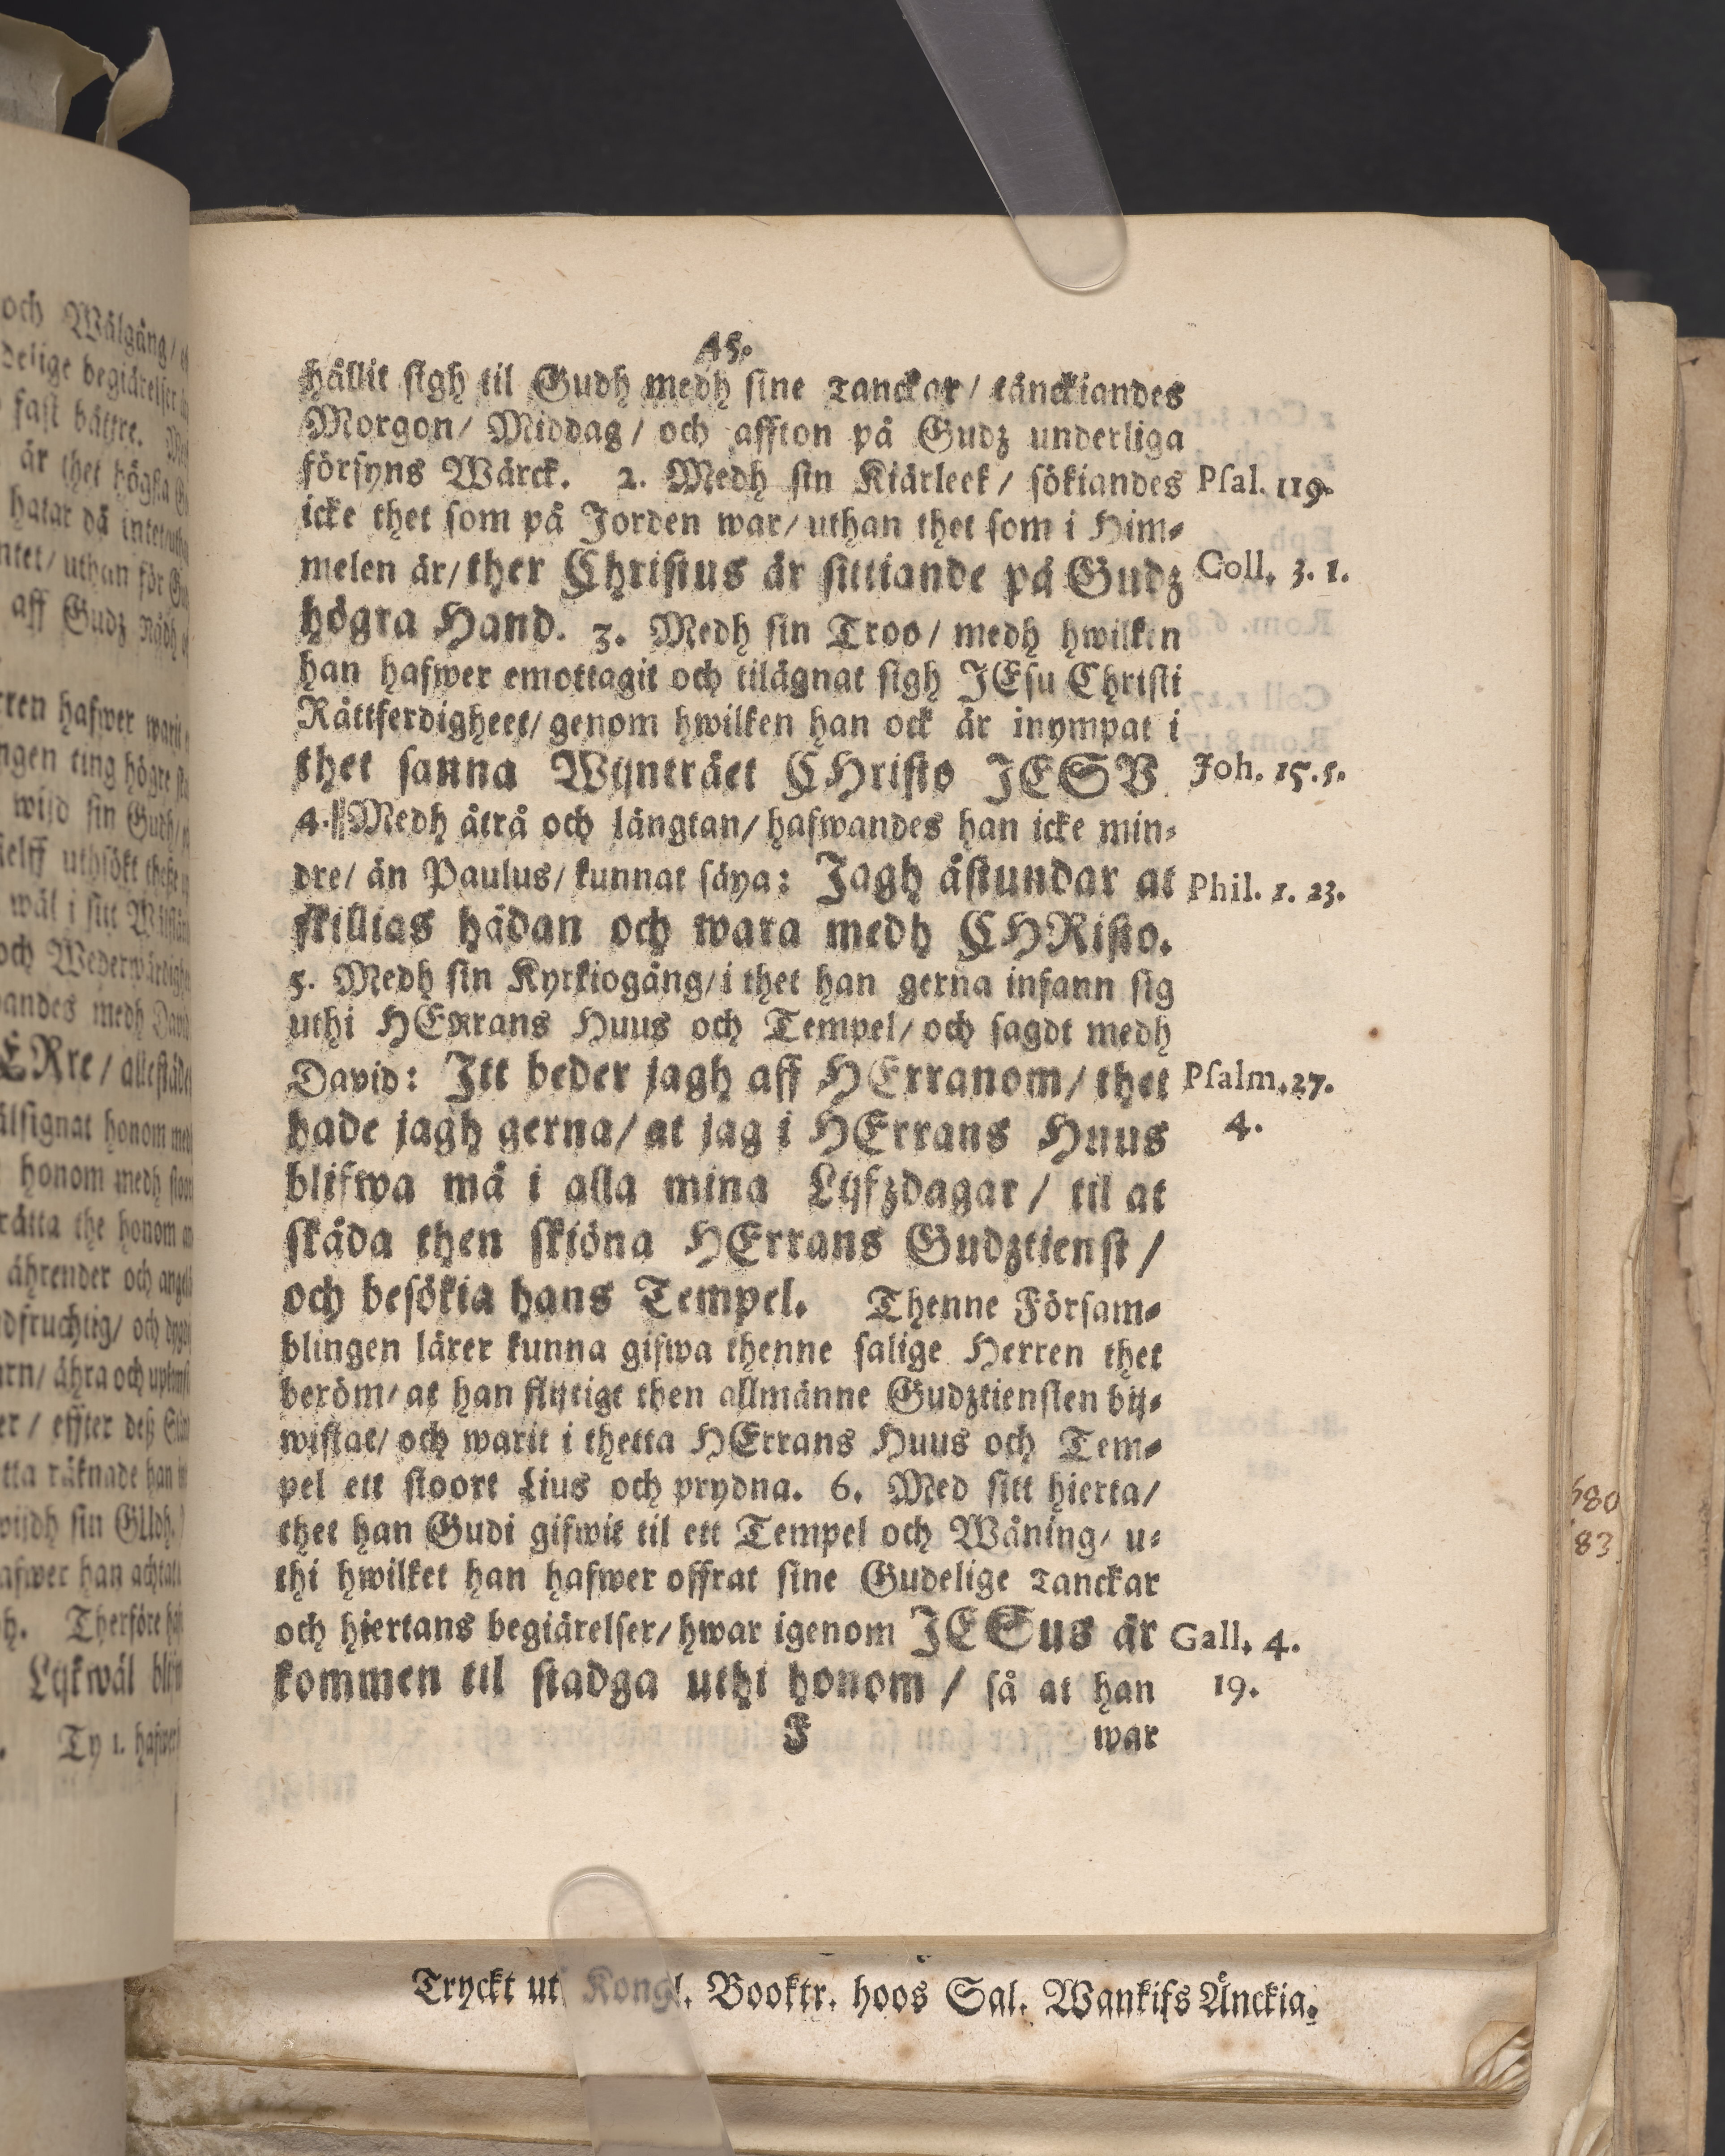 och Wälgång/
delige begiärelser
fast bättre.
är thet högsta
hatar då intet/uth
ntet/ uthan för
aff Gudz Nådh
rren hafwer warit
ngen ting högre
wijd sin Gudh/
ielff uthsökt thesse
wäl i sitt
och Wederwärdigh
andes medh David
ERre/ allestädes
älsignat honom med
honom medh stoor
rätta the honom
ährender och
dfruchtig/ och
arn/ ähra och
er/ effter deß
tta räknade han
wijdh sin GUdh.
afwer han achtat
h. Therföre
Lijkwäl
Ty 1. hafwer
45.
hållit sigh til Gudh medh sine Tanckar/ tänckiandes
Morgon/ Middag/ och affton på Gudz underliga
försyns Wärck. 2. Medh sin Kiärleek/ sökiandes Psal. 119.
icke thet som på Jorden war/ uthan thet som i Him-
melen är/ ther Christus är sittiande på Gudz Coll. 3. 1.
högra Hand. 3. Medh sin Troo/ medh hwilken
han hafwer emottagit och tilägnat sigh JEsu Christi
Rättferdigheet/ genom hwilken han ock är inympat i
thet sanna Wijnträet CHristo JESV Joh. 15. 5.
4. Medh åtrå och längtan/ hafwandes han icke min-
dre/ än Paulus/ kunnat säya: Jagh åstundar at Phil. 1. 23.
skillias hädan och wara medh CHRisto.
5. Medh sin Kyrkiogång/ i thet han gerna infann sig
uthi HERrans Huus och Tempel/ och sagdt medh
David: Itt beder jagh aff HErranom/ thet Psalm. 27.
hade jagh gerna/ at jag i HErrans Huus 4.
blifwa må i alla mina Lijfzdagar/ til at
skåda then skiöna HErrans Gudztienst/
och besökia hans Tempel. Thenne Försam-
blingen lärer kunna gifwa thenne salige Herren thet
beröm/ at han flijtigt then allmänne Gudztiensten bij-
wistat/ och warit i thetta HErrans Huus och Tem-
pel ett stoort Lius och prydna. 6. Med sitt hierta/
thet han Gudi gifwit til ett Tempel och Wåning/ u-
thi hwilket han hafwer offrat sine Gudelige Tanckar
och hiertans begiärelser/ hwar igenom JESus är Gall. 4.
kommen til stadga uthi honom/ så at han 19.
F war
680
83
Tryckt ut Kongl. Booktr. hoos Sal. Wankifs Änckia.